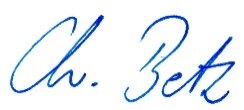 Ch. Betz